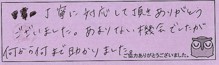 丁寧に対応して頂きありがとう
ございました。あまりない機会でしたが
何から何まで助かりました
ご協力ありがとうございました。